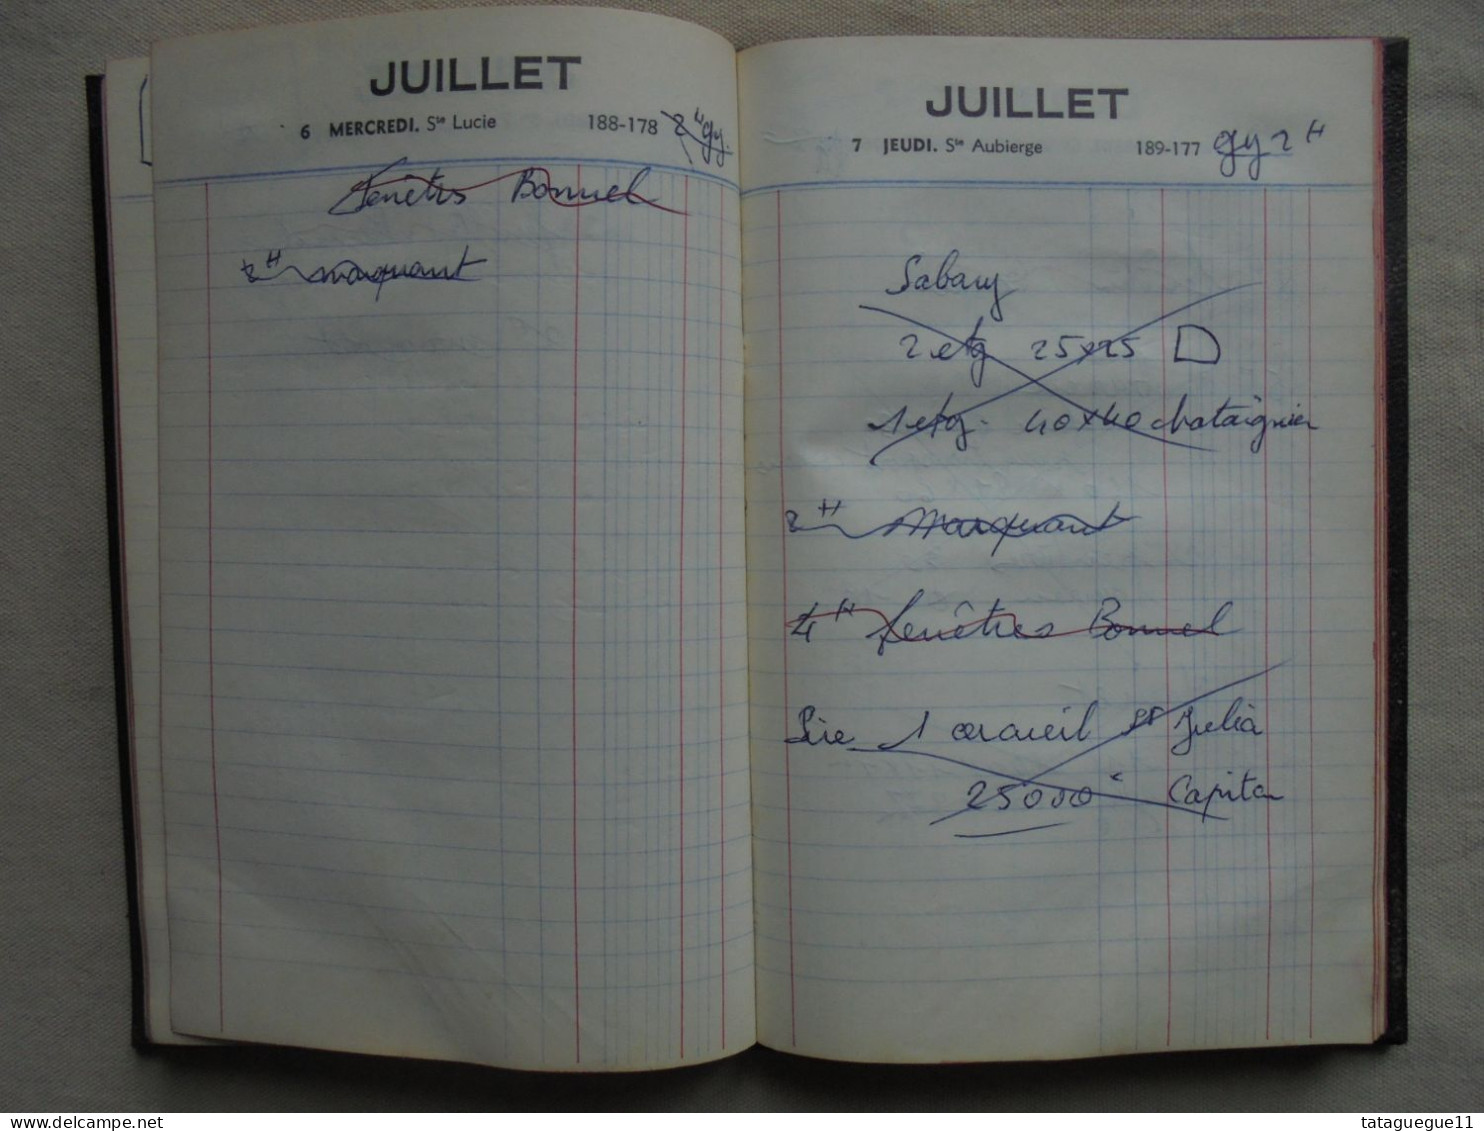 JUILLET
6 MERCREDI. Ste Lucie 188-178 2H gy.
Fenêtres Bonnel
2H marquant
JUILLET
7 JEUDI. Ste Aubierge 189-177 gy 2H
Sabary
2 etg 25x25 D
1 etg. 40x40 chataignier
2H Marquant
4H fenêtres Bonnel
1 cercueil Julia
25000 Capita
www.delcampe.net
tatagueugue11